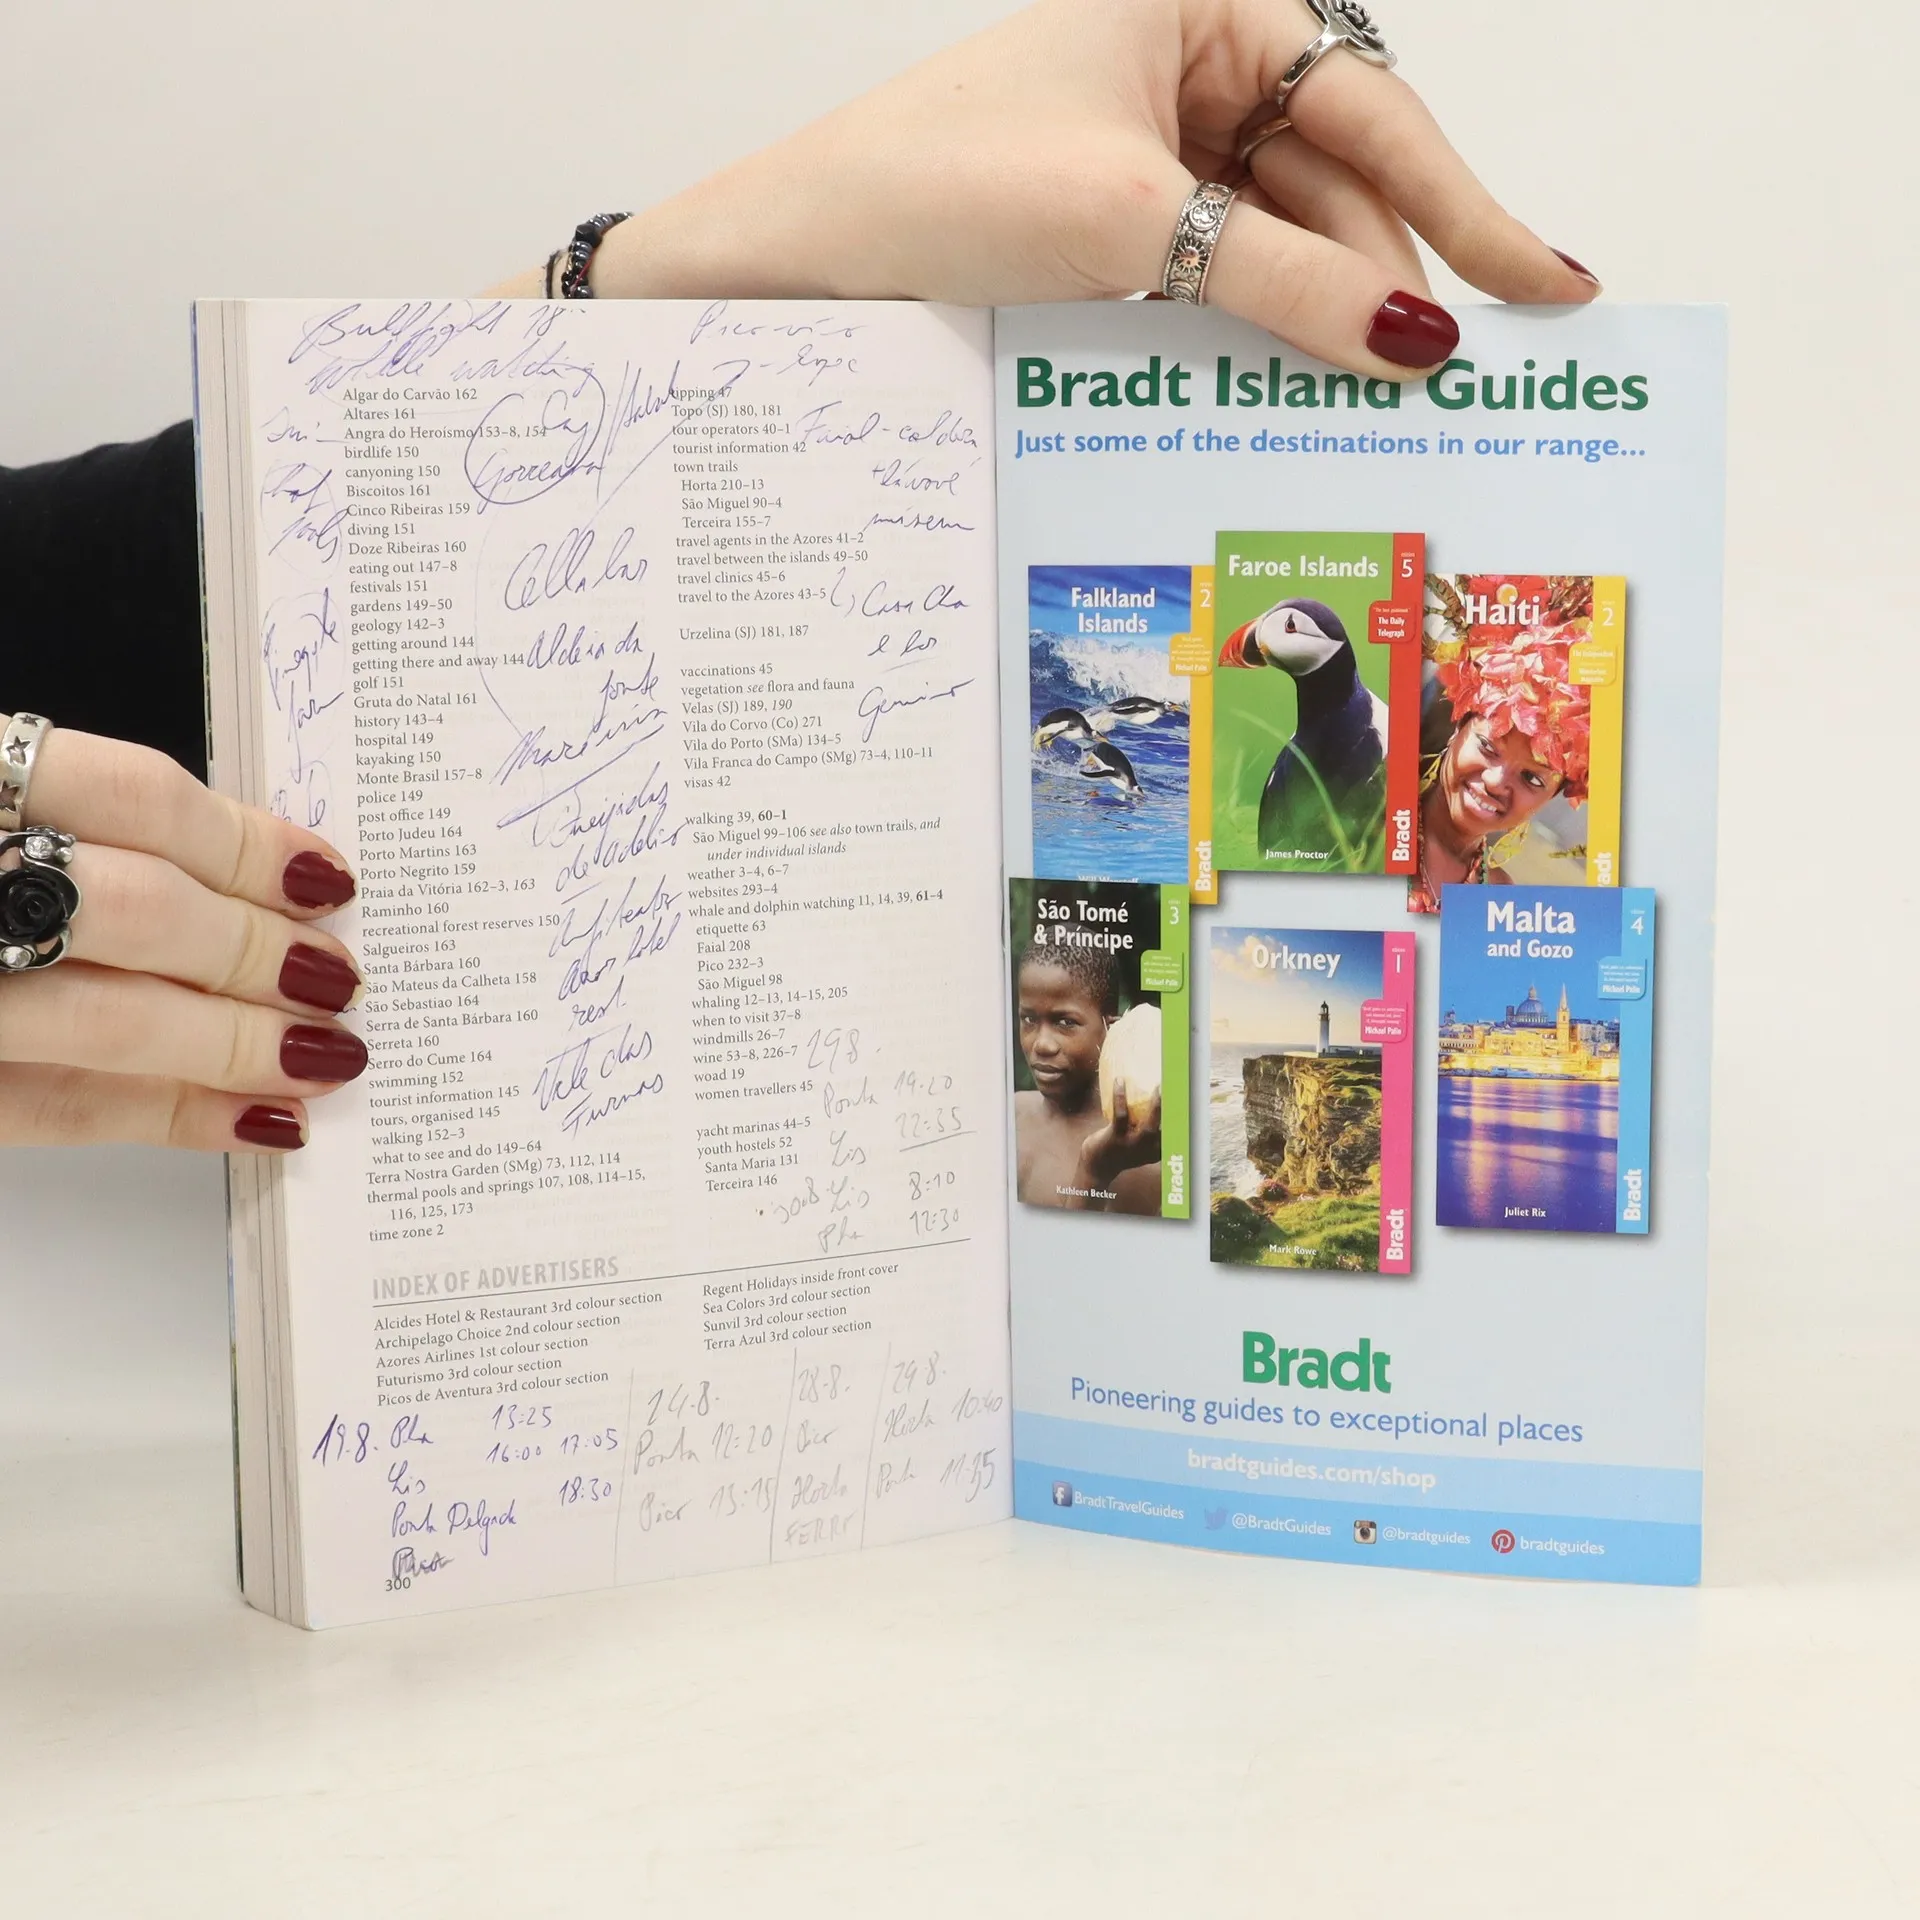 Bullfight 18
Whale watching
Pico - víno
Faial - caldera
Gorreana
hot
pools
Algar do Carvão 162
Altares 161
Angra do Heroísmo 153–8, 154
birdlife 150
canyoning 150
Biscoitos 161
Cinco Ribeiras 159
diving 151
Doze Ribeiras 160
eating out 147–8
festivals 151
gardens 149–50
geology 142–3
getting around 144
getting there and away 144
golf 151
Gruta do Natal 161
history 143–4
hospital 149
kayaking 150
Monte Brasil 157–8
police 149
post office 149
Porto Judeu 164
Porto Martins 163
Porto Negrito 159
Praia da Vitória 162–3, 163
Raminho 160
recreational forest reserves 150
Salgueiros 163
Santa Bárbara 160
São Mateus da Calheta 158
São Sebastiao 164
Serra de Santa Bárbara 160
Serreta 160
Serro do Cume 164
swimming 152
tourist information 145
tours, organised 145
walking 152–3
what to see and do 149–64
Terra Nostra Garden (SMg) 73, 112, 114
thermal pools and springs 107, 108, 114–15,
116, 125, 173
time zone 2
Cella bar
Aldeia da
fonte
Queijadas
de
rest.
Vale das
Furnas
tipping 47
Topo (SJ) 180, 181
tour operators 40–1
tourist information 42
town trails
Horta 210–13
São Miguel 90–4
Terceira 155–7
travel agents in the Azores 41–2
travel between the islands 49–50
travel clinics 45–6
travel to the Azores 43–5
Urzelina (SJ) 181, 187
vaccinations 45
vegetation see flora and fauna
Velas (SJ) 189, 190
Vila do Corvo (Co) 271
Vila do Porto (SMa) 134–5
Vila Franca do Campo (SMg) 73–4, 110–11
visas 42
walking 39, 60–1
São Miguel 99–106 see also town trails, and
under individual islands
weather 3–4, 6–7
websites 293–4
whale and dolphin watching 11, 14, 39, 61–4
etiquette 63
Faial 208
Pico 232–3
São Miguel 98
whaling 12–13, 14–15, 205
when to visit 37–8
windmills 26–7
wine 53–8, 226–7
woad 19
women travellers 45
yacht marinas 44–5
youth hostels 52
Santa Maria 131
Terceira 146
298.
Ponta 19:20
Lis 22:35
Lis 8:10
Pha 12:30
INDEX OF ADVERTISERS
Alcides Hotel & Restaurant 3rd colour section
Archipelago Choice 2nd colour section
Azores Airlines 1st colour section
Futurismo 3rd colour section
Picos de Aventura 3rd colour section
Regent Holidays inside front cover
Sea Colors 3rd colour section
Sunvil 3rd colour section
Terra Azul 3rd colour section
19.8. Pha 13:25
Lis 16:00 17:05
Ponta Delgada 18:30
24.8.
Ponta 12:20
Pico 13:15
28.8.
Pico
Horta
FERRY
29.8.
Horta 10:40
Ponta 11:35
300
Bradt Island Guides
Just some of the destinations in our range...
Falkland
Islands
2
Faroe Islands
5
The Daily
Telegraph
James Proctor
Bradt
Haiti
2
Bradt
Michael Palin
Bradt
São Tomé
& Príncipe
3
Michael Palin
Kathleen Becker
Bradt
Orkney
1
Michael Palin
Mark Rowe
Bradt
Malta
and Gozo
4
Michael Palin
Juliet Rix
Bradt
Bradt
Pioneering guides to exceptional places
bradtguides.com/shop
BradtTravelGuides
@BradtGuides
@bradtguides
bradtguides